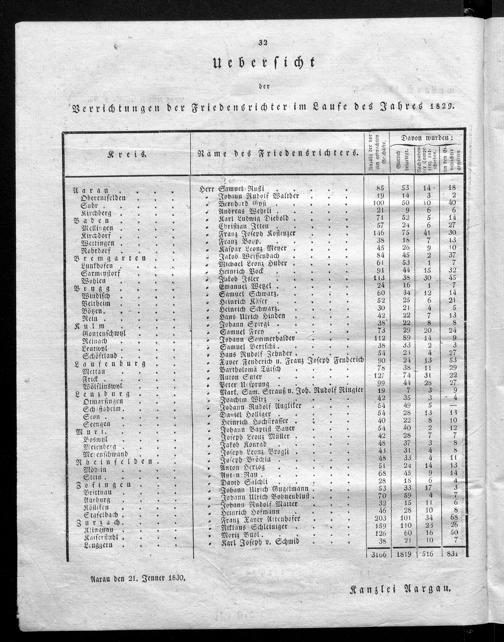 32
Uebersicht
der
Verrichtungen der Friedensrichter im Laufe des Jahres 1829.
Kreis. Name des Friedensrichters. Davon wurden:
Aarau Herr Samuel Rusli 85 53 14 18
Oberentfelden " Johann Rudolf Walther 19 14 3 2
Suhr " Bernhard Gysi 100 50 10 40
Kirchberg " Andreas Wehrli 21 9 6 6
Baden " Karl Ludwig Diebold 71 52 5 14
Mellingen " Christian Itten 57 24 6 27
Kirchdorf " Franz Joseph Kostinzer 146 75 41 30
Wettingen " Franz Bopp 38 18 7 13
Rohrdorf " Kaspar Leonz Meyer 45 26 9 10
Bremgarten " Jakob Weissenbach 84 45 2 37
Lunkhofen " Michael Leonz Huber 61 53 1 7
Sarmenstorf " Heinrich Bock 91 44 15 32
Wohlen " Jakob Isler 113 38 30 45
Brugg " Emanuel Wetzel 24 16 1 7
Windisch " Samuel Schwarz 60 34 12 14
Veltheim " Heinrich Käser 52 25 6 21
Bötzen " Heinrich Schwarz 30 21 4 5
Rein " Hans Ulrich Hinden 42 22 7 13
Kulm " Johann Spirgi 38 22 8 8
Gontenschwyl " Samuel Frey 73 29 20 24
Reinach " Johann Sommerhalder 112 89 14 9
Leutwyl " Samuel Bertschi 38 33 2 3
Schöftland " Hans Rudolf Zehnder 54 23 4 27
Laufenburg " Xaver Fendrich u. Franz Joseph Fendrich 90 24 13 53
Mettau " Bartholomä Tütsch 78 38 11 29
Frick " Anton Suter 127 74 31 22
Wölflinswyl " Peter Ursprung 99 44 28 27
Lenzburg " Mark. Sam. Strauss u. Joh. Rudolf Ringier 19 7 3 9
Otmarsingen " Joachim Wirz 42 35 3 4
Schafisheim " Johann Rudolf Angliker 54 49 5 —
Seon " Daniel Holliger 54 28 13 13
Seengen " Heinrich Hochstrasser 40 22 8 10
Muri " Johann Baptist Bauer 54 40 2 12
Boswyl " Joseph Leonz Müller 42 28 7 7
Meienberg " Jakob Konrad 48 37 3 8
Merenschwand " Joseph Leonz Brögli 43 31 4 8
Rheinfelden " Joseph Bröchin 48 33 4 11
Möhlin " Anton Herzog 51 24 14 13
Stein " Anton Rau 68 45 9 14
Zofingen " David Salchli 28 18 6 4
Brittnau " Johann Ulrich Gugelmann 53 33 17 3
Aarburg " Johann Ulrich Bonnenblust 70 59 4 7
Kölliken " Johann Rudolf Matter 32 15 11 6
Stafelbach " Heinrich Hofmann 46 28 10 8
Zurzach " Franz Xaver Attenhofer 203 101 34 68
Klingnau " Niklaus Schleiniger 159 110 23 26
Kaiserstuhl " Moriz Buol 126 60 16 50
Lenggern " Karl Joseph v. Schmid 38 21 10 7
3166 1819 516 831
Aarau den 21. Jenner 1830.
Kanzlei Aargau.